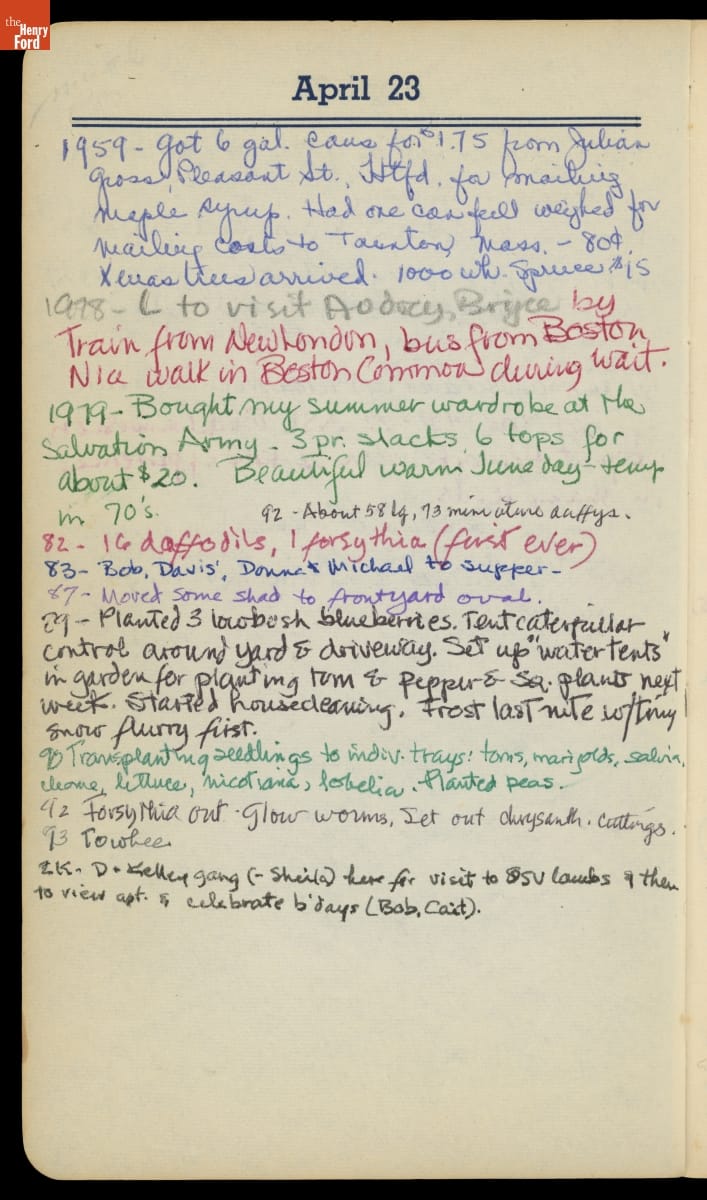 the
Henry
Ford
April 23
1959 - Got 6 gal. cans for $1.75 from Julian
Gross, Pleasant St., Htfd. for mailing
maple syrup. Had one can full weighed for
mailing costs to Taunton, Mass. - 80¢.
Xmas trees arrived. 1000 wh. Spruce $15
1978 - L to visit Audrey Bryce by
Train from New London, bus from Boston
Nice walk in Boston Common during wait.
1979 - Bought my summer wardrobe at the
Salvation Army - 3 pr. slacks, 6 tops for
about $20. Beautiful warm June day - temp
in 70's.
92 - About 58 lg, 73 miniature daffys.
82 - 16 daffodils, 1 forsythia (first ever)
83 - Bob, Davis', Donna & Michael to supper -
87 - Moved some shad to frontyard oval.
89 - Planted 3 lowbush blueberries. Tent caterpillar
control around yard & driveway. Set up "water tents"
in garden for planting tom & pepper & sq. plants next
week. Started housecleaning. Frost last nite w/tiny
snow flurry first.
90 Transplanting seedlings to indiv. trays: toms, marigolds, salvia,
cleome, lettuce, nicotiana, lobelia. Planted peas.
92 Forsythia out - Glow worms, Set out chrysanth. cuttings.
93 Towhee
2K - D + Kelley gang (- Sheila) here for visit to OSV lambs & then
to view apt. & celebrate b'days (Bob, Cait).